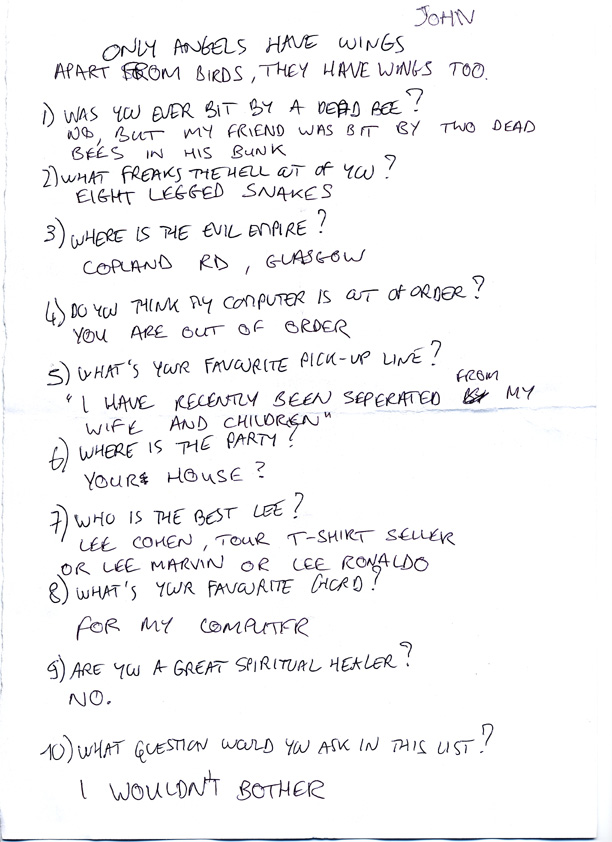 JOHN
ONLY ANGELS HAVE WINGS
APART FROM BIRDS, THEY HAVE WINGS TOO.
1) WAS YOU EVER BIT BY A DEAD BEE?
NO, BUT MY FRIEND WAS BIT BY TWO DEAD
BEES IN HIS BUNK
2) WHAT FREAKS THE HELL OUT OF YOU?
EIGHT LEGGED SNAKES
3) WHERE IS THE EVIL EMPIRE?
COPLAND RD, GLASGOW
4) DO YOU THINK MY COMPUTER IS OUT OF ORDER?
YOU ARE OUT OF ORDER
5) WHAT'S YOUR FAVOURITE PICK-UP LINE?
"I HAVE RECENTLY BEEN SEPERATED FROM MY
WIFE AND CHILDREN"
6) WHERE IS THE PARTY?
YOUR HOUSE?
7) WHO IS THE BEST LEE?
LEE COHEN, TOUR T-SHIRT SELLER
OR LEE MARVIN OR LEE RONALDO
8) WHAT'S YOUR FAVOURITE CHORD?
FOR MY COMPUTER
9) ARE YOU A GREAT SPIRITUAL HEALER?
NO.
10) WHAT QUESTION WOULD YOU ASK IN THIS LIST?
I WOULDN'T BOTHER